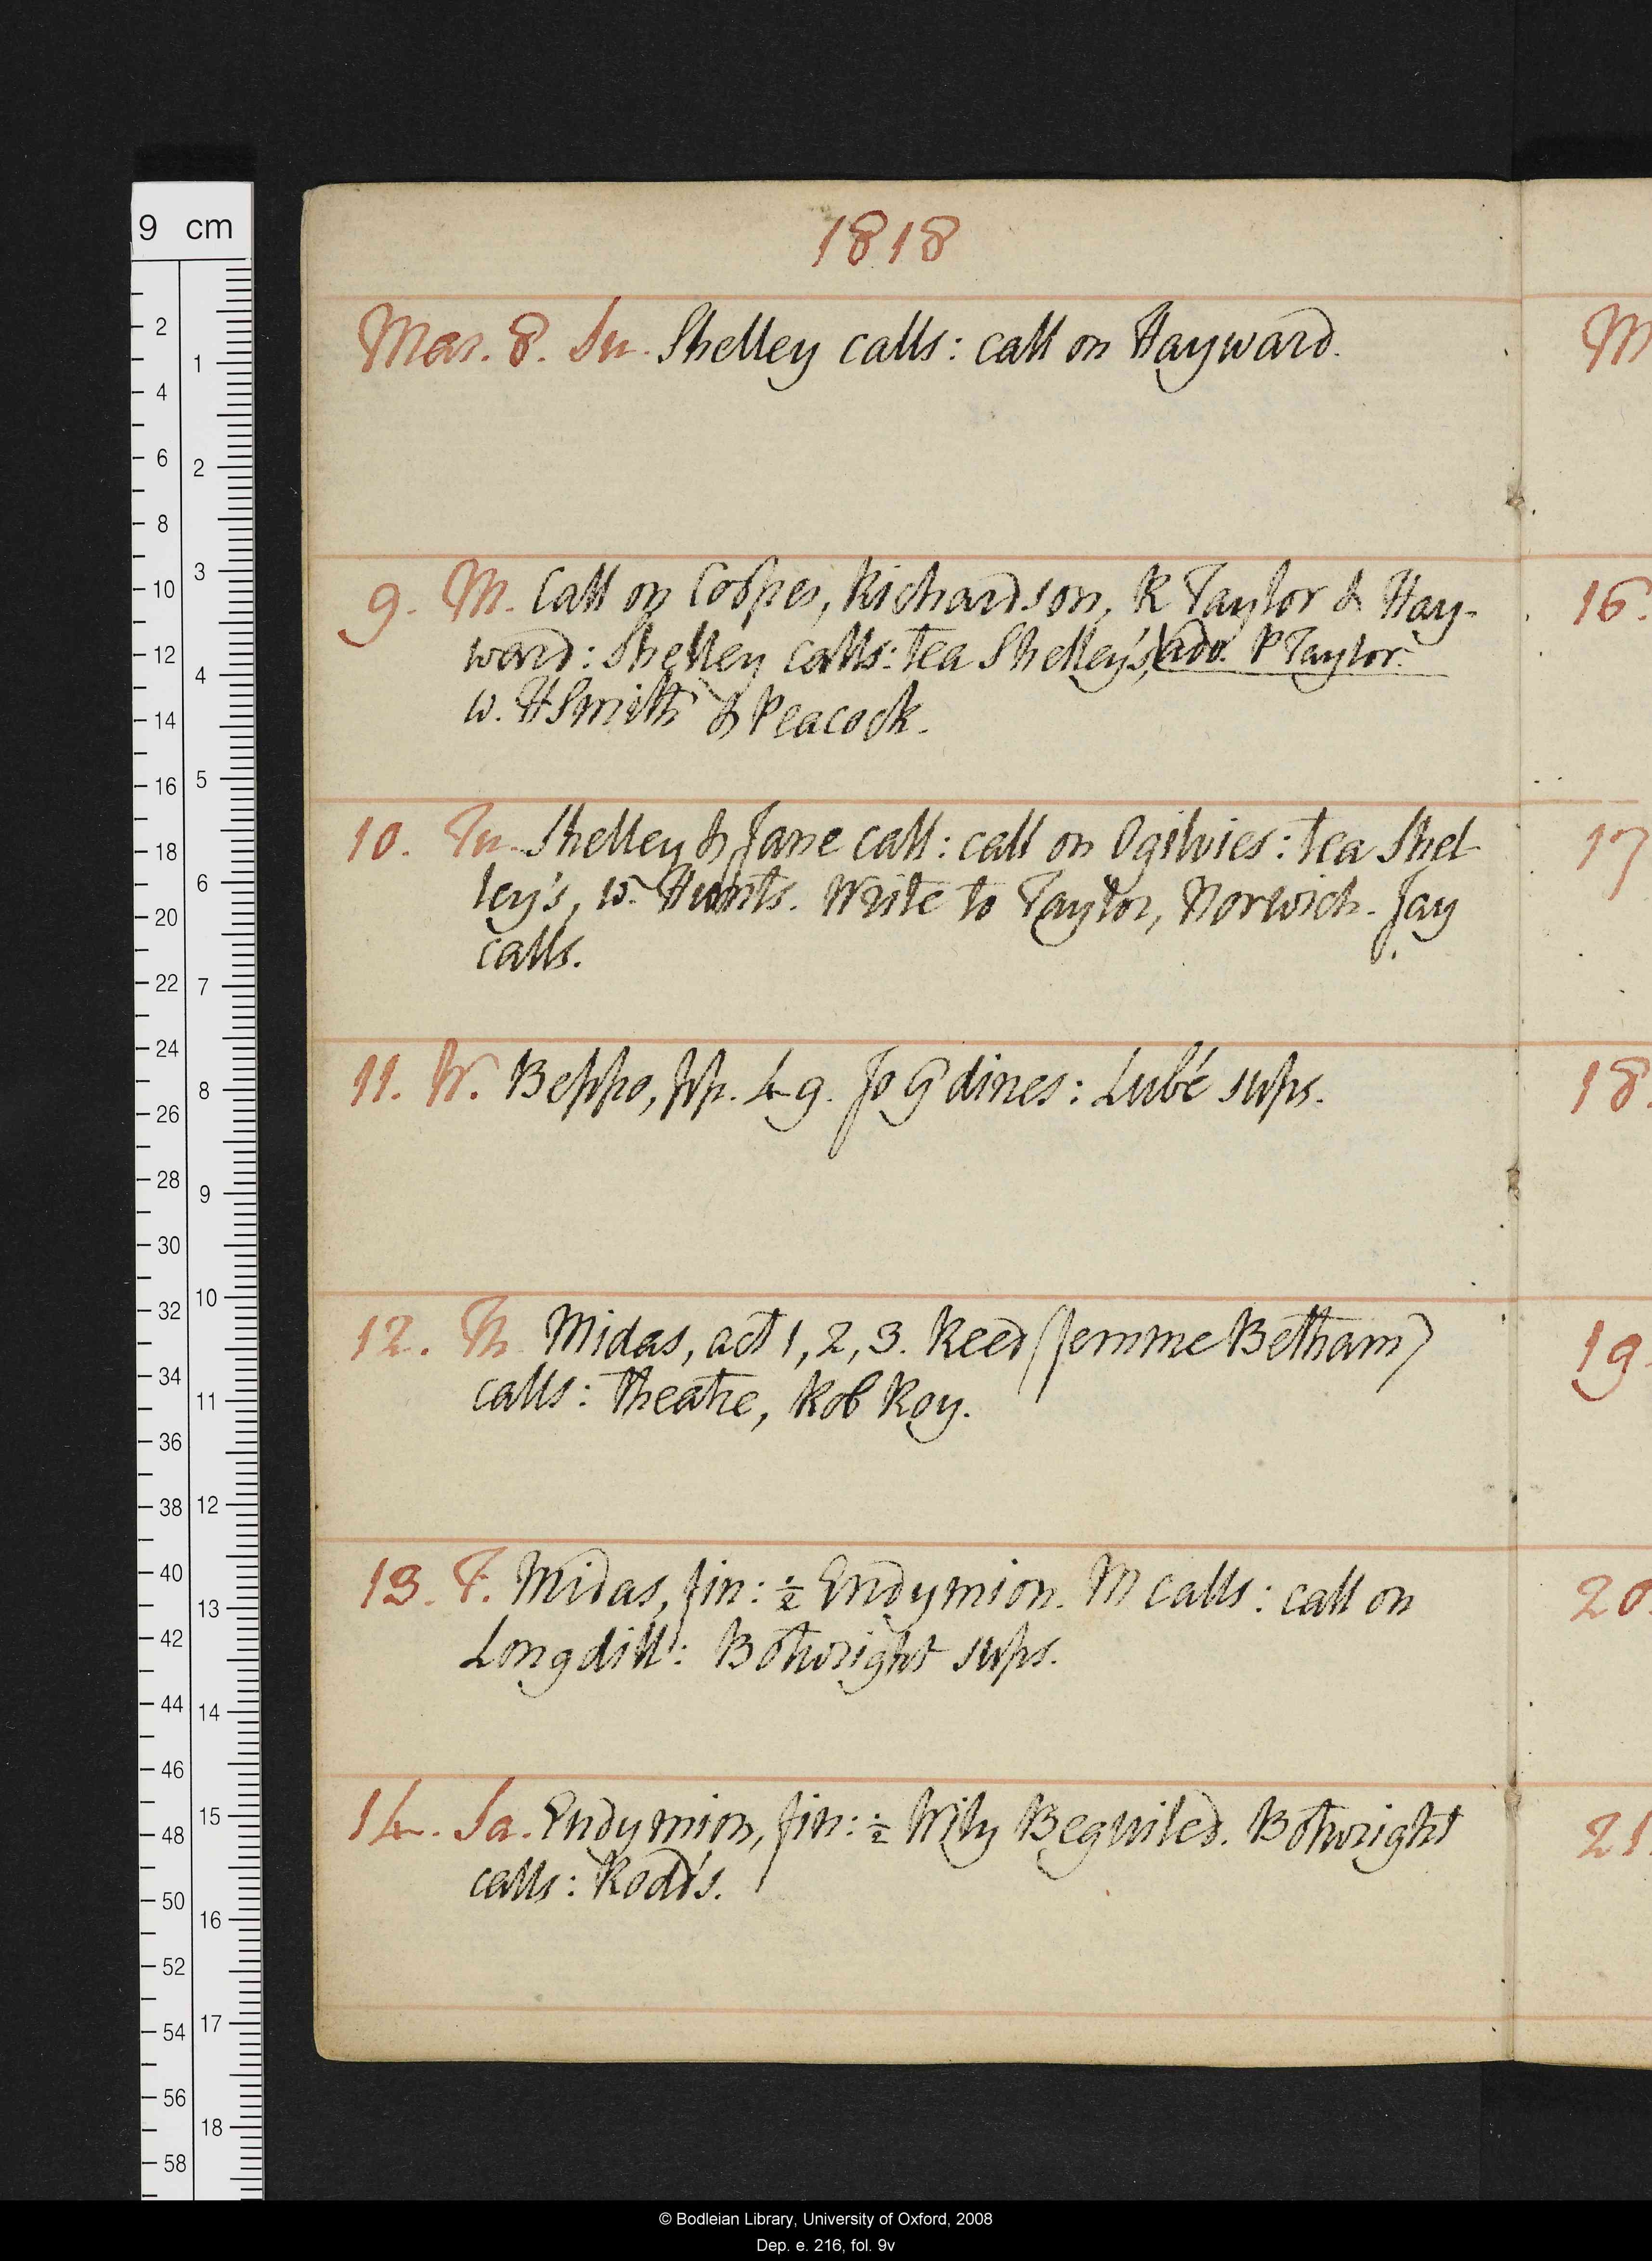 9 cm
1818
Mar. 8. Su. Shelley calls: call on Hayward.
9. M. Call on Cooper, Richardson, R Taylor & Hay-
ward: Shelley calls: tea Shelley's, adv. P Taylor.
w. H Smith & Peacock.
10. Tu. Shelley & Jane call: call on Ogilvies: tea Shel-
ley's, w. Hunts. Write to Taylor, Norwich. Jay
calls.
11. W. Beppo, pp. 49. Jo G dines: Lubé sups.
12. Th. Midas, act 1, 2, 3. Reed (femme Betham)
calls: theatre, Rob Roy.
13. F. Midas, fin: ½ Endymion. M calls: call on
Longdill: Botwright sups.
14. Sa. Endymion, fin: ½ Wily Beguiled. Botwright
calls: Rodd's.
M
16.
17
18.
19.
20
21
2
4
6
8
10
12
14
16
18
20
22
24
26
28
30
32
34
36
38
40
42
44
46
48
50
52
54
56
58
1
2
3
4
5
6
7
8
9
10
11
12
13
14
15
16
17
18
© Bodleian Library, University of Oxford, 2008
Dep. e. 216, fol. 9v